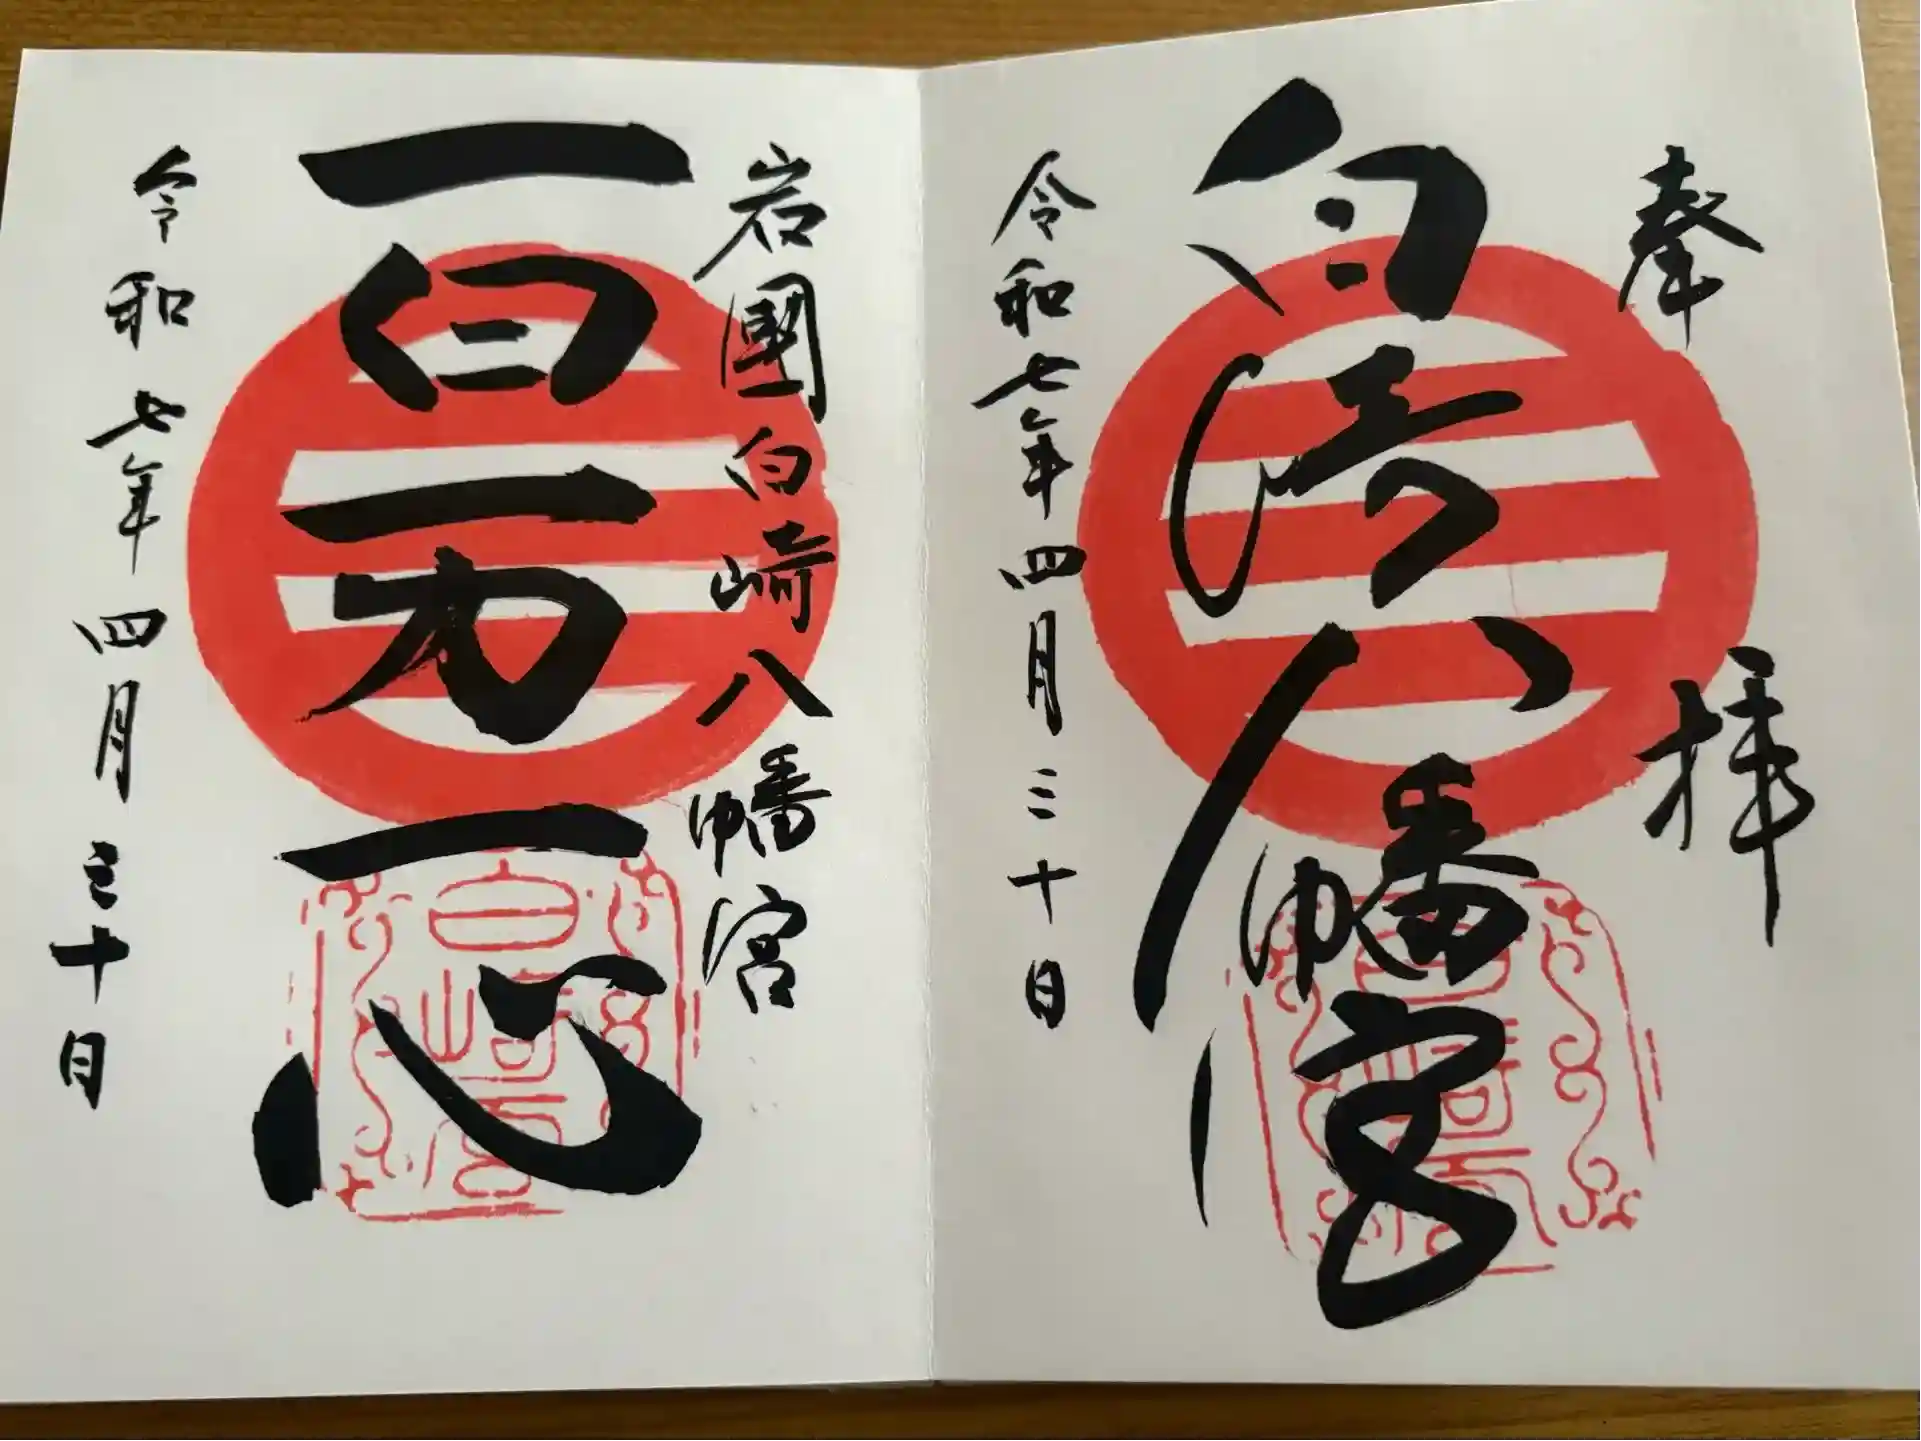 奉拝
白崎八幡宮
白崎宮
令和七年四月三十日
岩國白崎八幡宮
一日一力一心
白崎宮
令和七年四月三十日